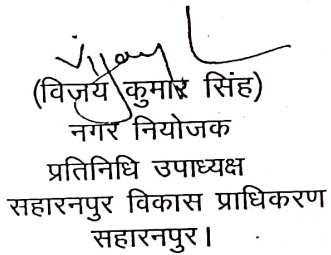 Vijay
(विजय कुमार सिंह)
नगर नियोजक
प्रतिनिधि उपाध्यक्ष
सहारनपुर विकास प्राधिकरण
सहारनपुर।